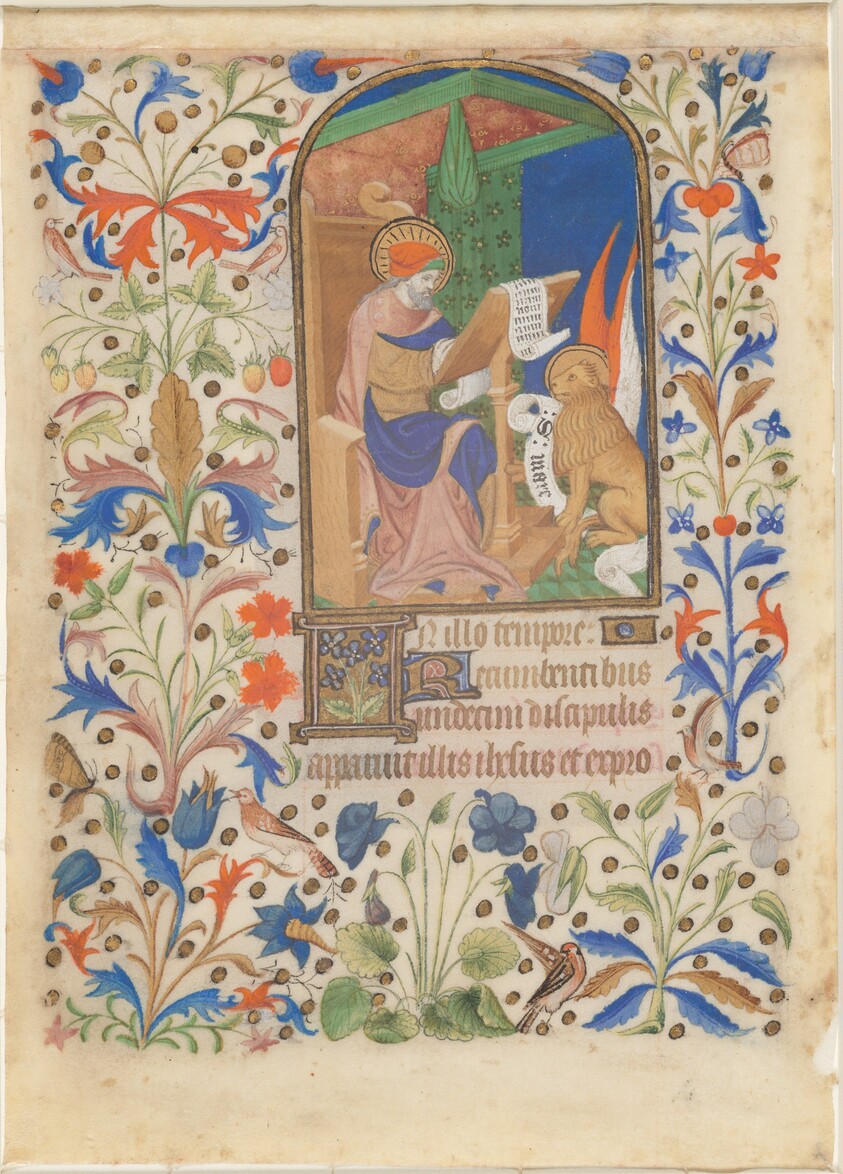 S: marc
IN illo tempore:
Recumbentibus
undecim discipulis
apparuit illis ihesus et expro